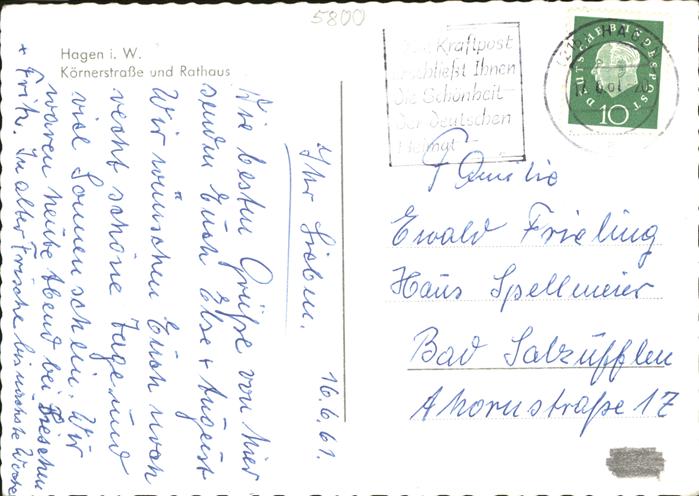 5800
Hagen i. W.
Körnerstraße und Rathaus
Die Kraftpost
erschließt Ihnen
die Schönheit
der deutschen
Heimat
DEUTSCHE BUNDESPOST
10
16.6.61.
Ihr Lieben.
Die besten Grüße von hier
senden Euch Else + August
Wir wünschen Euch noch
recht schöne Tage und
viel Sonnenschein. Wir
waren heute Abend bei
+ Fritz. In alter Frische bis nächste Woche
Familie
Ewald Frieling
Haus Spellmeier
Bad Salzufflen
Ahornstraße 17